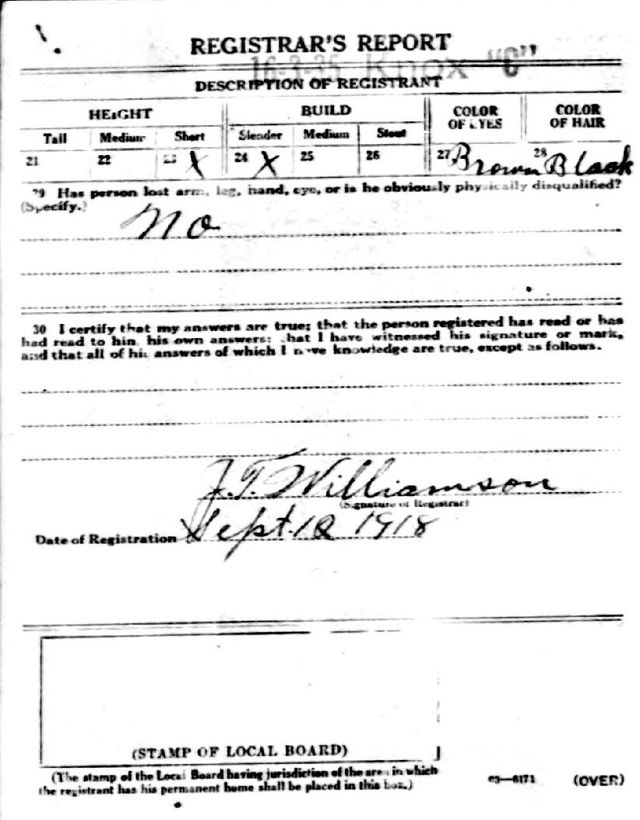 REGISTRAR'S REPORT
16-3-35 Knox "C"
DESCRIPTION OF REGISTRANT
HEIGHT BUILD COLOR OF EYES COLOR OF HAIR
Tall Medium Short Slender Medium Stout
21 22 23 X 24 X 25 26 27 Brown 28 Black
29 Has person lost arm, leg, hand, eye, or is he obviously physically disqualified?
(Specify.)
No
30 I certify that my answers are true; that the person registered has read or has
had read to him his own answers; that I have witnessed his signature or mark,
and that all of his answers of which I have knowledge are true, except as follows.
J. T. Williamson
(Signature of Registrar)
Date of Registration Sept. 12 1918
(STAMP OF LOCAL BOARD)
(The stamp of the Local Board having jurisdiction of the area in which
the registrant has his permanent home shall be placed in this box.)
03—6171 (OVER)